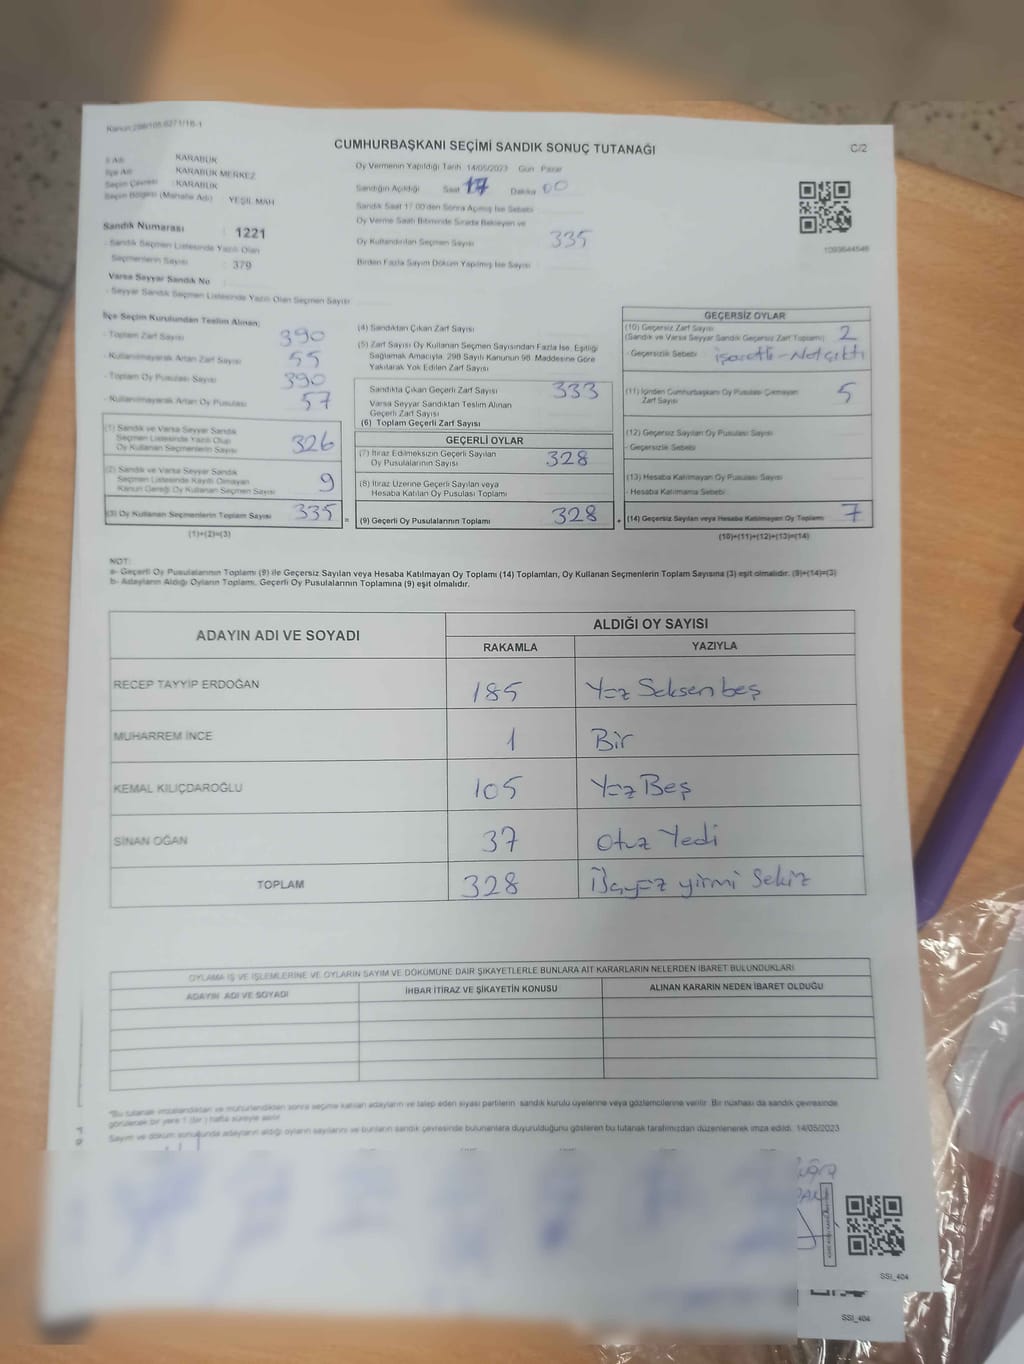 Kanun:298/105,6271/18-1
CUMHURBAŞKANI SEÇİMİ SANDIK SONUÇ TUTANAĞI
C/2
İl Adı KARABÜK
İlçe Adı KARABÜK MERKEZ
Seçim Çevresi : KARABÜK
Seçim Bölgesi (Mahalle Adı) YEŞİL MAH
Sandık Numarası : 1221
- Sandık Seçmen Listesinde Yazılı Olan
Seçmenlerin Sayısı : 379
Varsa Seyyar Sandık No
- Seyyar Sandık Seçmen Listesinde Yazılı Olan Seçmen Sayısı
Oy Vermenin Yapıldığı Tarih 14/05/2023 Gün Pazar
Sandığın Açıldığı Saat 17 Dakika 00
Sandık Saat 17:00'den Sonra Açılmış İse Sebebi
Oy Verme Saati Bitiminde Sırada Bekleyen ve
Oy Kullandırılan Seçmen Sayısı 335
Birden Fazla Sayım Döküm Yapılmış İse Sayısı
1093644546
İlçe Seçim Kurulundan Teslim Alınan;
- Toplam Zarf Sayısı 390
- Kullanılmayarak Artan Zarf Sayısı 55
- Toplam Oy Pusulası Sayısı 390
- Kullanılmayarak Artan Oy Pusulası 57
(1) Sandık ve Varsa Seyyar Sandık
Seçmen Listesinde Yazılı Olup
Oy Kullanan Seçmenlerin Sayısı 326
(2) Sandık ve Varsa Seyyar Sandık
Seçmen Listesinde Kayıtlı Olmayan
Kanun Gereği Oy Kullanan Seçmen Sayısı 9
(3) Oy Kullanan Seçmenlerin Toplam Sayısı 335 =
(1)+(2)=(3)
(4) Sandıktan Çıkan Zarf Sayısı
(5) Zarf Sayısı Oy Kullanan Seçmen Sayısından Fazla İse, Eşitliği
Sağlamak Amacıyla, 298 Sayılı Kanunun 98. Maddesine Göre
Yakılarak Yok Edilen Zarf Sayısı
Sandıkta Çıkan Geçerli Zarf Sayısı 333
Varsa Seyyar Sandıktan Teslim Alınan
Geçerli Zarf Sayısı
(6) Toplam Geçerli Zarf Sayısı
GEÇERLİ OYLAR
(7) İtiraz Edilmeksizin Geçerli Sayılan
Oy Pusulalarının Sayısı 328
(8) İtiraz Üzerine Geçerli Sayılan veya
Hesaba Katılan Oy Pusulası Toplamı
(9) Geçerli Oy Pusulalarının Toplamı 328 +
GEÇERSİZ OYLAR
(10) Geçersiz Zarf Sayısı
(Sandık ve Varsa Seyyar Sandık Geçersiz Zarf Toplamı) 2
- Geçersizlik Sebebi işaretli - Not çıktı
(11) İçinden Cumhurbaşkanı Oy Pusulası Çıkmayan
Zarf Sayısı 5
(12) Geçersiz Sayılan Oy Pusulası Sayısı
- Geçersizlik Sebebi
(13) Hesaba Katılmayan Oy Pusulası Sayısı
- Hesaba Katılmama Sebebi
(14) Geçersiz Sayılan veya Hesaba Katılmayan Oy Toplamı 7
(10)+(11)+(12)+(13)=(14)
NOT:
a- Geçerli Oy Pusulalarının Toplamı (9) ile Geçersiz Sayılan veya Hesaba Katılmayan Oy Toplamı (14) Toplamları, Oy Kullanan Seçmenlerin Toplam Sayısına (3) eşit olmalıdır. (9)+(14)=(3)
b- Adayların Aldığı Oyların Toplamı, Geçerli Oy Pusulalarının Toplamına (9) eşit olmalıdır.
ADAYIN ADI VE SOYADI ALDIĞI OY SAYISI
RAKAMLA YAZIYLA
RECEP TAYYİP ERDOĞAN 185 Yüz Seksen beş
MUHARREM İNCE 1 Bir
KEMAL KILIÇDAROĞLU 105 Yüz Beş
SİNAN OĞAN 37 Otuz Yedi
TOPLAM 328 Üçyüz yirmi Sekiz
OYLAMA İŞ VE İŞLEMLERİNE VE OYLARIN SAYIM VE DÖKÜMÜNE DAİR ŞİKAYETLERLE BUNLARA AİT KARARLARIN NELERDEN İBARET BULUNDUKLARI
ADAYIN ADI VE SOYADI İHBAR İTİRAZ VE ŞİKAYETİN KONUSU ALINAN KARARIN NEDEN İBARET OLDUĞU
*Bu tutanak imzalandıktan ve mühürlendikten sonra seçime katılan adayların ve talep eden siyasi partilerin sandık kurulu üyelerine veya gözlemcilerine verilir. Bir nüshası da sandık çevresinde
görülecek bir yere 1 (bir) hafta süreyle asılır.
Sayım ve döküm sonucunda adayların aldığı oyların sayılarını ve bunların sandık çevresinde bulunanlara duyurulduğunu gösteren bu tutanak tarafımızdan düzenlenerek imza edildi. 14/05/2023
SSI_404
SSI_404